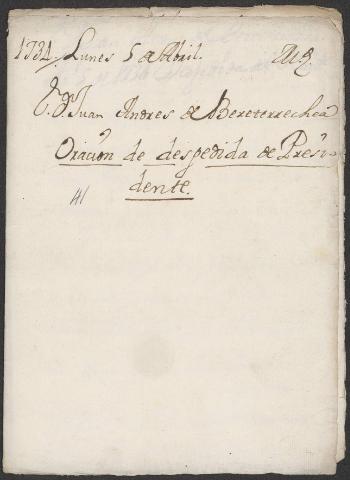 1734. Lunes 5 de Abril.
Dn. Juan Andres de Bereterrechea
Oracion de despedida de Presi-
dente.
41